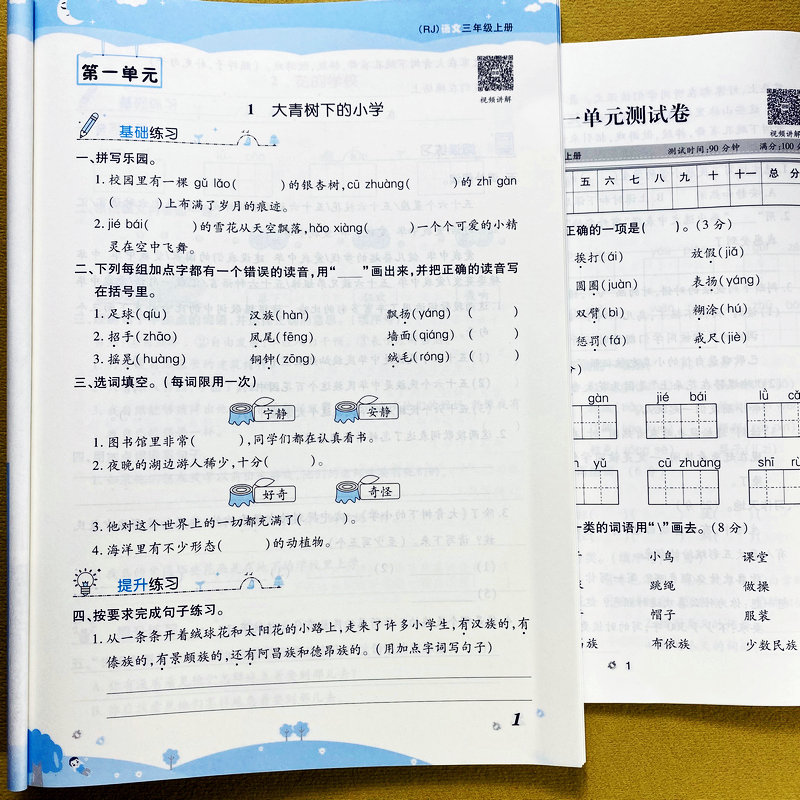 (RJ) 语文三年级上册
第一单元
视频讲解
1 大青树下的小学
基础练习
一、拼写乐园。
1. 校园里有一棵 gǔ lǎo( )的银杏树,cū zhuàng( )的 zhī gàn
( )上布满了岁月的痕迹。
2. jié bái( )的雪花从天空飘落,hǎo xiàng( )一个个可爱的小精
灵在空中飞舞。
二、下列每组加点字都有一个错误的读音,用“____”画出来,并把正确的读音写
在括号里。
1. 足球(qíu) 汉族(hàn) 飘扬(yáng) ( )
2. 招手(zhāo) 凤尾(fēng) 墙面(qiáng) ( )
3. 摇晃(huàng) 铜钟(zōng) 绒毛(róng) ( )
三、选词填空。(每词限用一次)
宁静 安静
1. 图书馆里非常( ),同学们都在认真看书。
2. 夜晚的湖边游人稀少,十分( )。
好奇 奇怪
3. 他对这个世界上的一切都充满了( )。
4. 海洋里有不少形态( )的动植物。
提升练习
四、按要求完成句子练习。
1. 从一条条开着绒球花和太阳花的小路上,走来了许多小学生,有汉族的,有
傣族的,有景颇族的,还有阿昌族和德昂族的。(用加点字词写句子)
1
一单元测试卷
视频讲解
上册 测试时间:90分钟 满分:100分
五 六 七 八 九 十 十一 总 分
正确的一项是( )。(3分)
挨打(ái) 放假(jiǎ)
圆圈(juàn) 表扬(yáng)
双臂(bì) 糊涂(hú)
惩罚(fá) 戒尺(jiè)
gàn jié bái lǜ
yǔ cū zhuàng shī
一类的词语用“\”画去。(8分)
小鸟 课堂
跳绳 做操
帽子 服装
族 布依族 少数民族
1